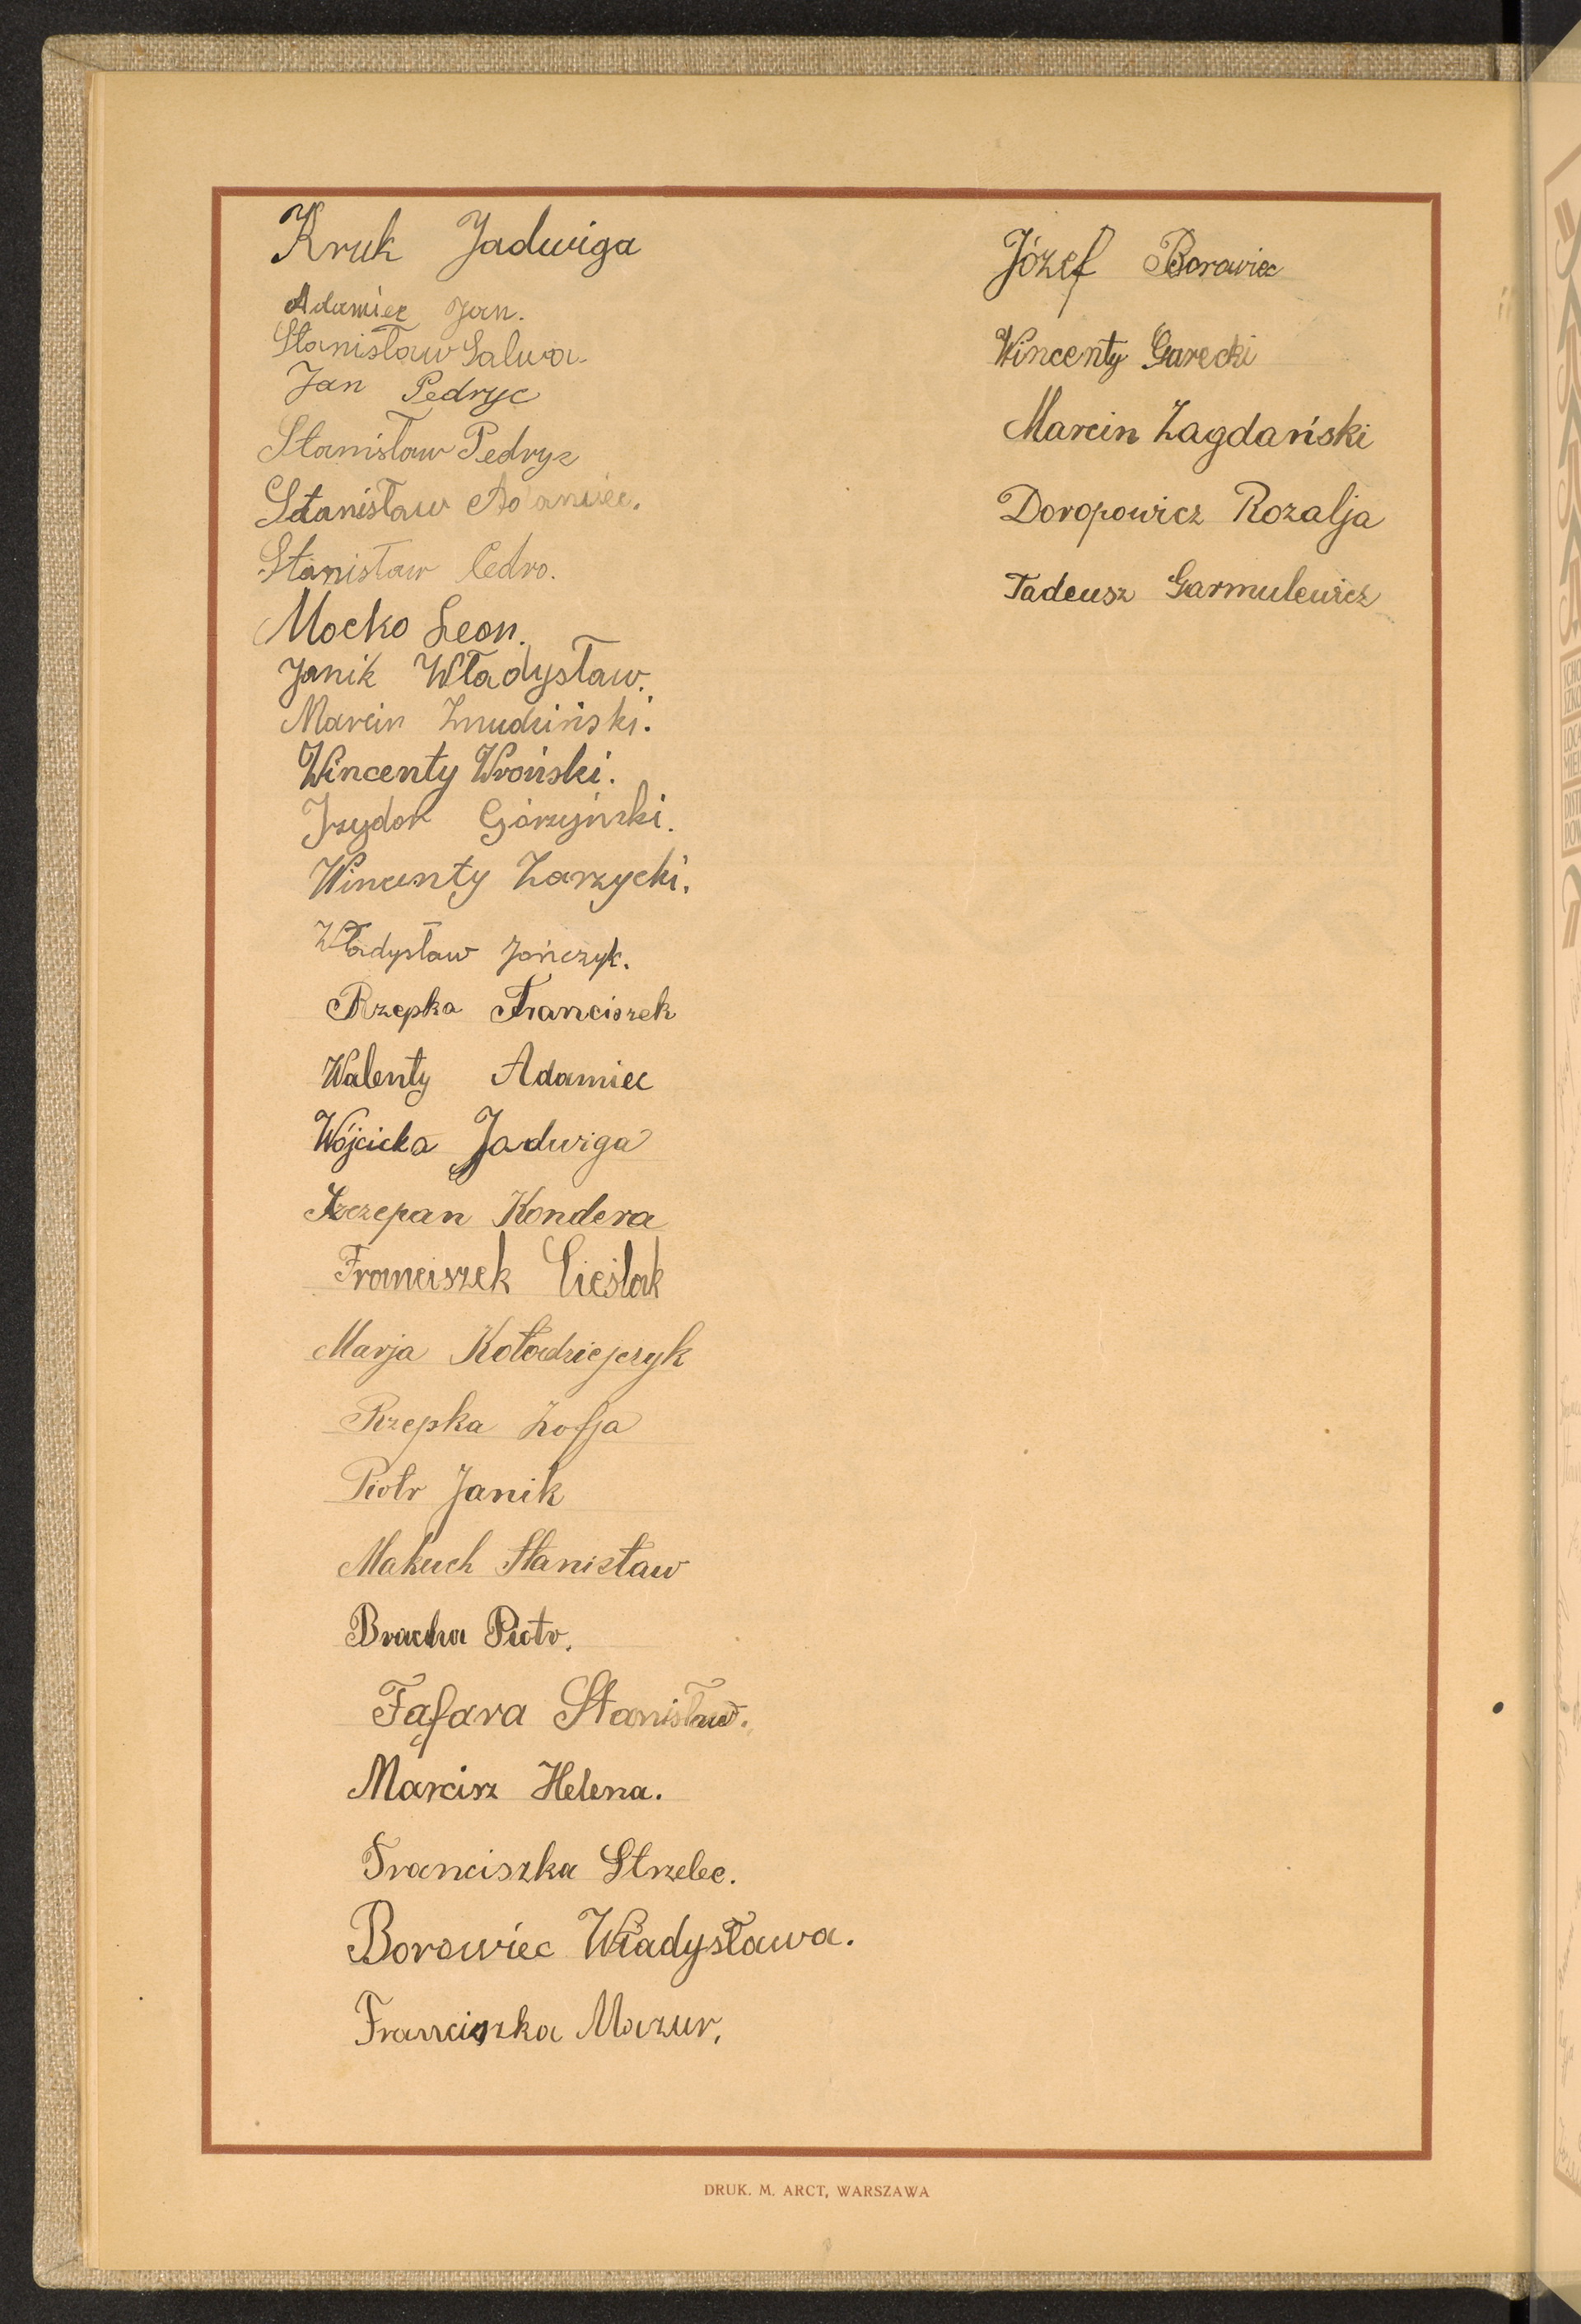 Kruk Jadwiga
Adamiec Jan.
Stanisław Salwa.
Jan Pedryc
Stanisław Pedryc
Stanisław Adamiec.
Stanisław Cedro.
Mocko Leon.
Janik Władysław.
Marcin Żmudziński.
Wincenty Wroński.
Izydor Górzyński.
Wincenty Zarzycki.
Władysław Jończyk.
Rzepka Franciszek
Walenty Adamiec
Wójcicka Jadwiga
Szczepan Kondera
Franciszek Cieślak
Marja Kołodziejczyk
Rzepka Zofja
Piotr Janik
Makuch Stanisław
Bracha Piotr.
Fąfara Stanisław.
Marcisz Helena.
Franciszka Strzelec.
Borowiec Władysława.
Franciszka Mazur.
Józef Borowiec
Wincenty Garecki
Marcin Zagdański
Doropowicz Rozalja
Tadeusz Garmulewicz
DRUK. M. ARCT, WARSZAWA